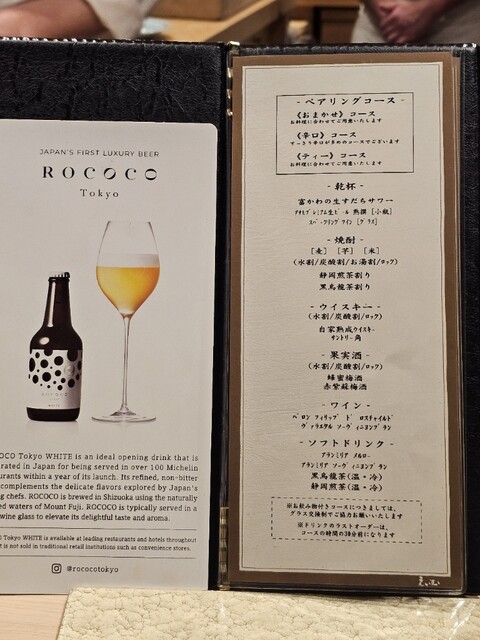 JAPAN'S FIRST LUXURY BEER
ROCOCO
Tokyo
OCO Tokyo WHITE is an ideal opening drink that is
rated in Japan for being served in over 100 Michelin
urants within a year of its launch. Its refined, non-bitter
complements the delicate flavors explored by Japan's
g chefs. ROCOCO is brewed in Shizuoka using the naturally
ed waters of Mount Fuji. ROCOCO is typically served in a
wine glass to elevate its delightful taste and aroma.
O Tokyo WHITE is available at leading restaurants and hotels throughout
t is not sold in traditional retail institutions such as convenience stores.
@rococotokyo
- ペアリングコース -
《おまかせ》コース
お料理に合わせてご用意いたします
《辛口》コース
すっきり辛口がきめのコースでございます
《ティー》コース
お料理に合わせてご用意いたします
- 乾杯 -
富かわの生すだちサワー
アサヒプレミアム生ビール 熟撰 [小瓶]
スパークリングワイン [グラス]
- 焼酎 -
[麦] [芋] [米]
(水割/炭酸割/お湯割/ロック)
静岡煎茶割り
黒烏龍茶割り
- ウイスキー -
(水割/炭酸割/ロック)
自家熟成ウイスキー
サントリー角
- 果実酒 -
(水割/炭酸割/ロック)
蜂蜜梅酒
赤紫蘇梅酒
- ワイン -
バロン フィリップ ド ロスチャイルド
ヴァラエタル ソーヴィニヨンブラン
- ソフトドリンク -
アランミリア メルロー
アランミリア ソーヴィニヨンブラン
黒烏龍茶(温・冷)
静岡煎茶(温・冷)
※お飲み物付きコースにつきましては、
グラス交換制でご協力お願いいたします。
※ドリンクのラストオーダーは、
コースの時間の30分前になります